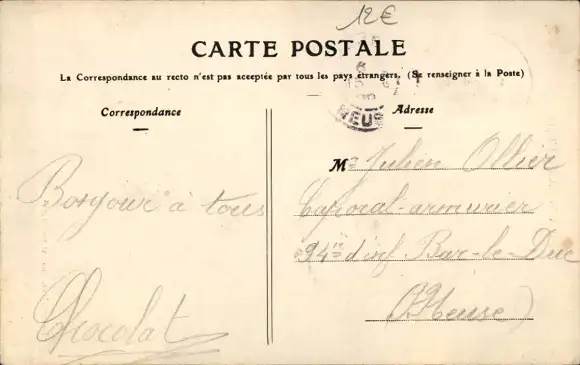 12€
CARTE POSTALE
La Correspondance au recto n'est pas acceptée par tous les pays étrangers. (Se renseigner à la Poste)
MEUSE
Correspondance
Adresse
Bonjour à tous
Chocolat
Mr Julien Ollier
Caporal armurier
94e d'inf Bar-le-Duc
(Meuse)